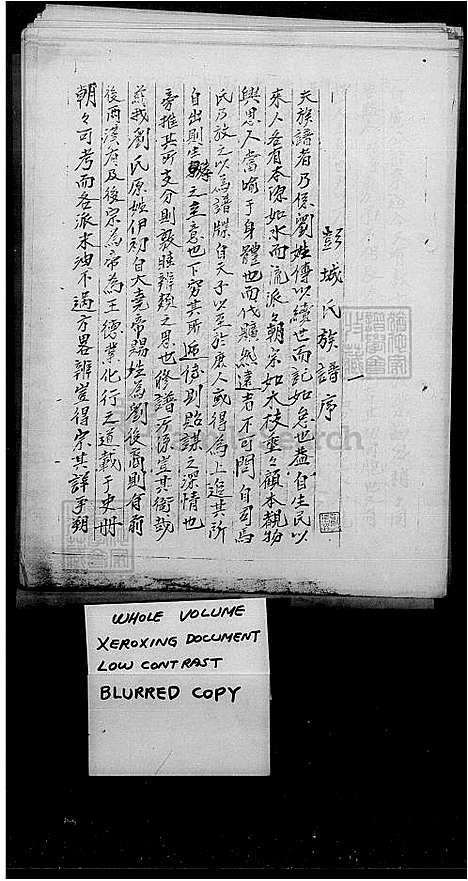 彭城氏族譜序
夫族譜者乃係劉姓傳以續世而記如怠也蓋自生民以
來人各有本源如水而流派々朝宗如木枝垂々顧本覩物
興思人當喻于身體也而代曠然遠者不可問自司馬
氏乃放之以為譜牒自天子以至於庶人或得為上追其所
自出則生之主意也下穷其所逓傳則貽謀之深情也
旁推其所支分則敦睦辨親之恩也修譜所係豈其衛哉
我劉氏原姓伊祁自大堯帝賜姓為劉後裔則有前
後两漢府及後宗為帝為王德業化行之道載于史冊
朝々可考而各派水油不過方畧辨豈得宗其詳乎朔
WHOLE VOLUME
XEROXING DOCUMENT
LOW CONTRAST
BLURRED COPY